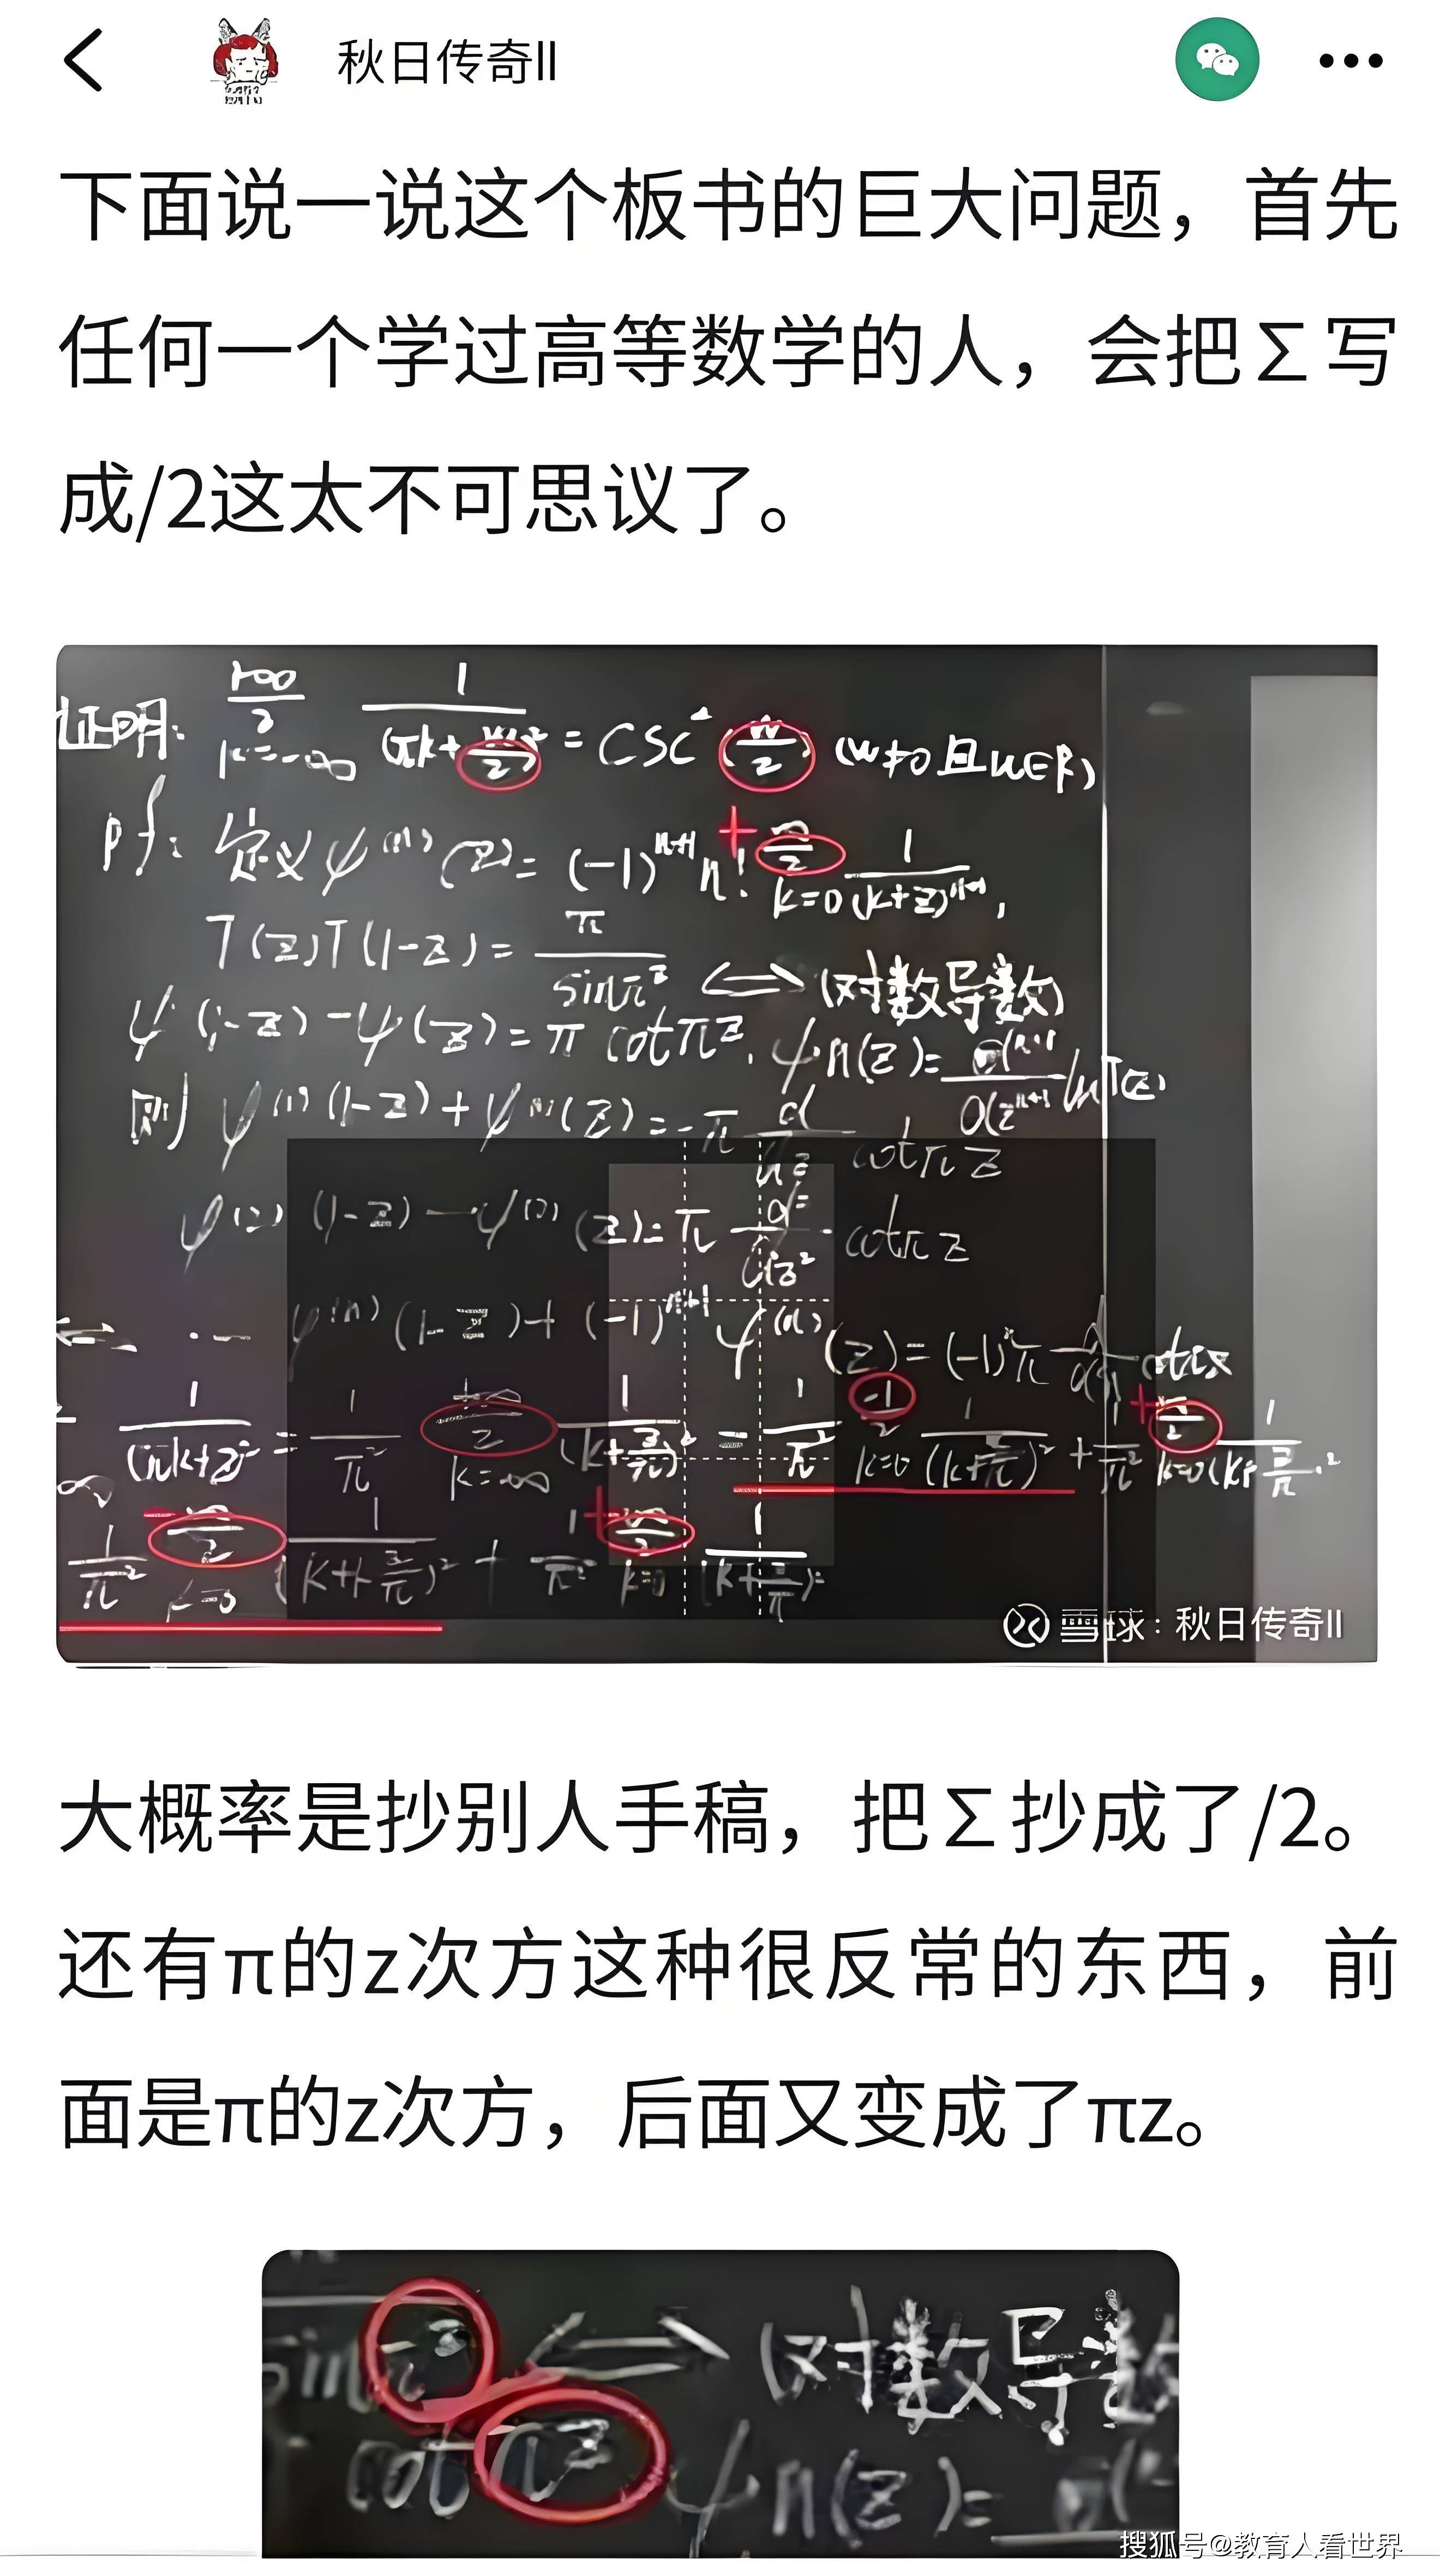 秋日传奇II
下面说一说这个板书的巨大问题，首先
任何一个学过高等数学的人，会把Σ写
成/2这太不可思议了。
证明: +∞/2 k=-∞ 1/(πk+w/2)² = csc²(w/2) (w≠0且w∈R)
pf: 定义ψ⁽ⁿ⁾(z)=(-1)ⁿ⁺¹n! ∞/2 k=0 1/(k+z)ⁿ⁺¹,
T(z)T(1-z)= π/sinπᶻ ⟺ (对数导数)
ψ(1-z)-ψ(z)=π cotπᶻ. ψn(z)= d⁽ⁿ⁺¹⁾/dzⁿ⁺¹ lnT(z)
则 ψ⁽¹⁾(1-z)+ψ⁽¹⁾(z)=-π d/dz cotπz
ψ⁽²⁾(1-z)-ψ⁽²⁾(z)=π d²/dz² cotπz
ψ⁽ⁿ⁾(1-z)+(-1)ⁿ⁺¹ψ⁽ⁿ⁾(z)=(-1)ⁿπ
1/(πk+z)² = 1/π² +∞/2 k=∞ 1/(k+z/π)² = 1/π² -1/2 k=0 1/(k+z/π)² + 1/π² ∞/2 k=0 1/(k+z/π)²
1/π² ∞/2 k=0 1/(k+1-z/π)² + 1/π² ∞/2 k=0 1/(k+z/π)²
雪球：秋日传奇II
大概率是抄别人手稿，把Σ抄成了/2。
还有π的z次方这种很反常的东西，前
面是π的z次方，后面又变成了πz。
⟺ (对数导数
cotπᶻ ψn(z)=
搜狐号@教育人看世界